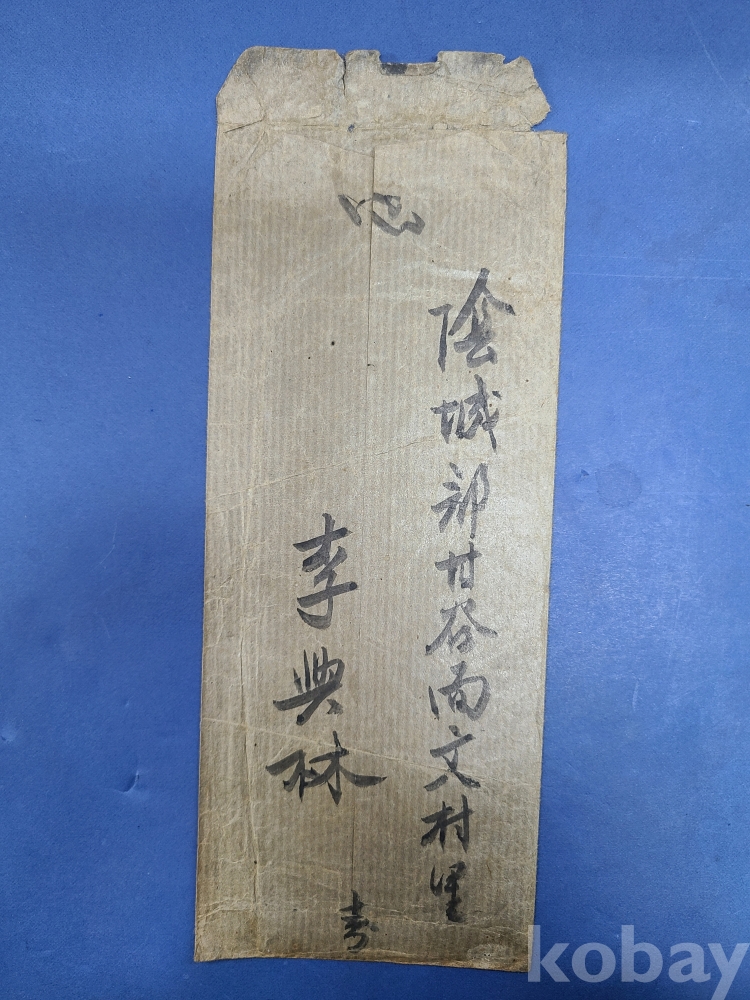 陰城郡甘谷面文村里
李典林
kobay